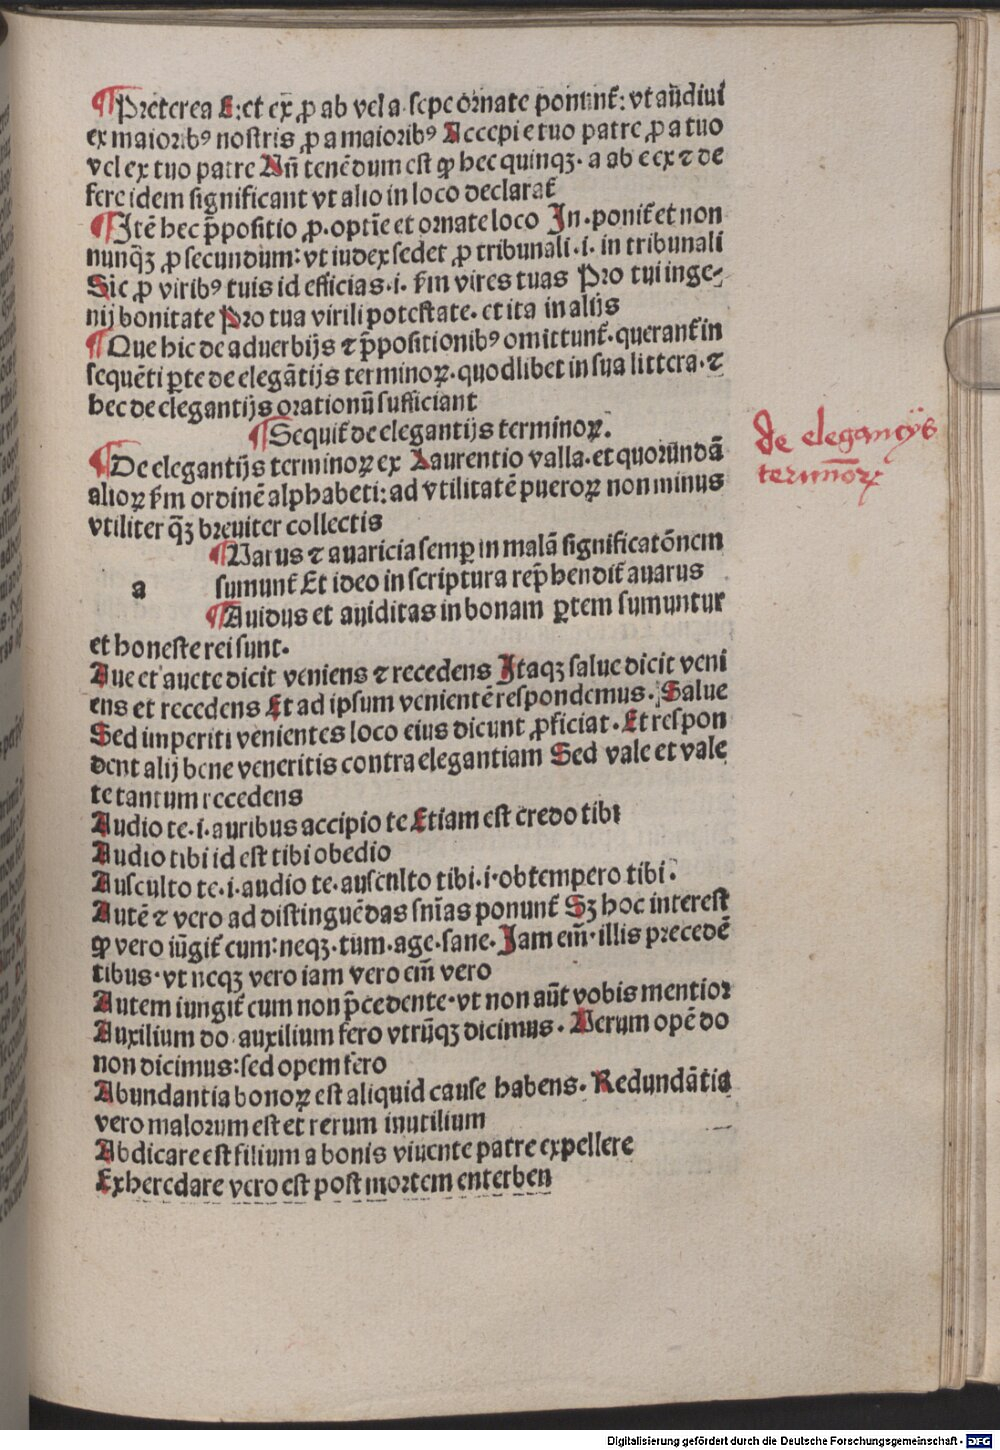 ¶Preterea E: et ex ꝓ ab vel a. sepe ornate ponunt᷑: vt audiui
ex maioribꝰ nostris ꝓ a maioribꝰ Accepi e tuo patre ꝓ a tuo
vel ex tuo patre Añ tenēdum est ꝙ hec quinqꝫ. a ab e ex ⁊ de
fere idem significant vt alio in loco declarat᷑
¶Itē hec p̄positio ꝓ. optīe et ornate loco In. ponit᷑ et non
nunq̄ꝫ ꝓ secundum: vt iudex sedet ꝓ tribunali .i. in tribunali
Sic ꝓ viribꝰ tuis id efficias .i. ẜm vires tuas Pro tui inge⸗
nij bonitate Pro tua virili potestate. et ita in alijs
¶Que hic de aduerbijs ⁊ p̄positionibꝰ omittunt᷑. querant᷑ in
sequēti ꝑte de elegātijs terminoꝝ. quodlibet in sua littera. ⁊
hec de elegantijs orationū sufficiant
¶Sequit᷑ de elegantijs terminoꝝ.
¶De elegantijs terminoꝝ ex Laurentio valla. et quorūndā
alioꝝ ẜm ordinē alphabeti: ad vtilitatē pueroꝝ non minus
vtiliter q̄ꝫ breuiter collectis
¶Uarus ⁊ auaricia semꝑ in malā significatōnem
a sumunt᷑ Et ideo in scriptura rep̄hendit᷑ auarus
¶Auidus et auiditas in bonam ꝑtem sumuntur
et honeste rei sunt.
Aue et auete dicit veniens ⁊ recedens Itaqꝫ salue dicit veni
ens et recedens Et ad ipsum venientē respondemus. Salue
Sed imperiti venientes loco eius dicunt ꝓficiat. Et respon
dent alij bene veneritis contra elegantiam Sed vale et vale
te tantum recedens
Audio te .i. auribus accipio te Etiam est credo tibi
Audio tibi id est tibi obedio
Ausculto te .i. audio te. ausculto tibi .i. obtempero tibi.
Autē ⁊ vero ad distinguēdas sn̄ias ponunt᷑ Sꝫ hoc interest
ꝙ vero iūgit᷑ cum: neqꝫ. tum. age. sane. Jam eīm. illis precedē
tibus. vt neqꝫ vero iam vero eīm vero
Autem iungit᷑ cum non p̄cedente. vt non aūt vobis mentior
Auxilium do. auxilium fero vtrūqꝫ dicimus. Uerum opē do
non dicimus: sed opem fero
Abundantia bonoꝝ est aliquid cause habens. Redundātia
vero malorum est et rerum inutilium
Abdicare est filium a bonis viuente patre expellere
Exheredare vero est post mortem enterben
de elegancijs
terminoꝝ
Digitalisierung gefördert durch die Deutsche Forschungsgemeinschaft - DFG